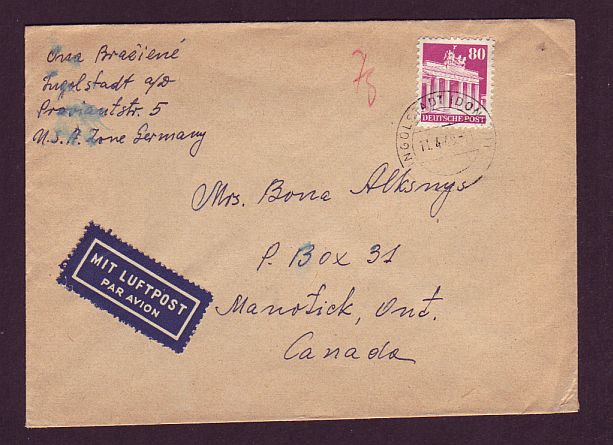 Ona Bračienė
Ingolstadt a/D
Proviantstr. 5
U.S.A. Zone Germany
80
DEUTSCHE POST
INGOLSTADT (DONAU)
11.4.
Mrs. Bona Alksnys
P. Box 31
Manotick, Ont.
Canada
MIT LUFTPOST
PAR AVION